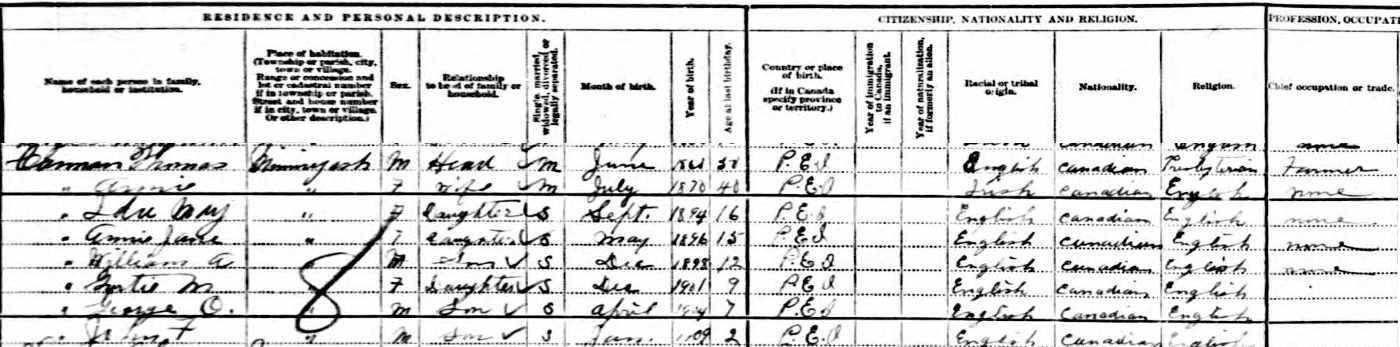 RESIDENCE AND PERSONAL DESCRIPTION. CITIZENSHIP, NATIONALITY AND RELIGION. PROFESSION, OCCUPATI
Name of each person in family, household or institution. Place of habitation. (Township or parish, city, town or village. Range or concession and lot or cadastral number if in township or parish. Street and house number if in city, town or village. Or other description.) Sex. Relationship to head of family or household. Single, married, widowed, divorced or legally separated. Month of birth. Year of birth. Age at last birthday. Country or place of birth. (If in Canada specify province or territory.) Year of immigration to Canada, if an immigrant. Year of naturalization, if formerly an alien. Racial or tribal origin. Nationality. Religion. Chief occupation or trade.
Thomas M Head ✓ M June P.E.I English Canadian Presbyterian Farmer
" " F Wife ✓ M July 1870 40 P.E.I Irish Canadian English none
" May " F Daughter ✓ S Sept. 1894 16 P.E.I English Canadian English none
" Annie Jane " F Daughter ✓ S May 1896 15 P.E.I English Canadian English none
" William A " M Son ✓ S Dec 1898 12 P.E.I English Canadian English none
" M " F Daughter ✓ S Dec 1901 9 P.E.I English Canadian English
" George O. " M Son ✓ S April 7 P.E.I English Canadian English
" John F " M Son ✓ S Jan. 1909 2 P.E.I English Canadian English
8